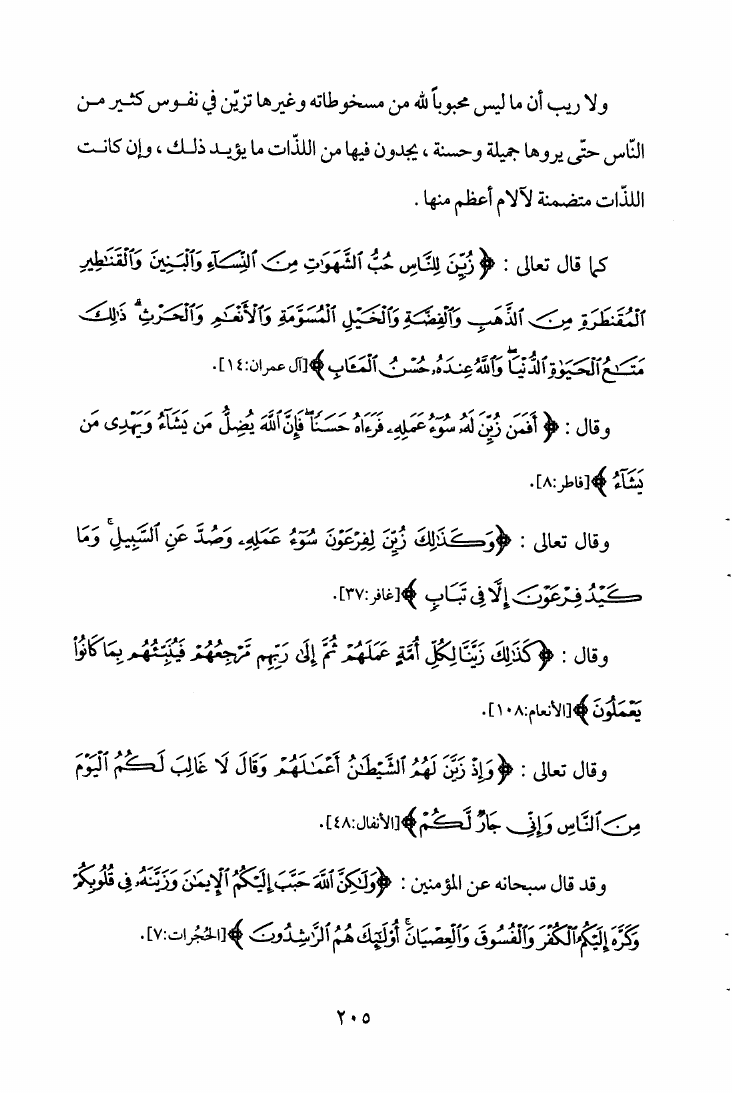 ولا ريب أن ما ليس محبوباً لله من مسخوطاته وغيرها تزيّن في نفـوس كثـير مـن
النّاس حتّى يروها جميلة وحسنة ، يجدون فيها من اللذّات ما يؤيـد ذلـك ، وإن كانـت
اللذّات متضمنة لآلام أعظم منها .
كما قال تعالى : ﴿ زُيِّنَ لِلنَّاسِ حُبُّ ٱلشَّهَوَٰتِ مِنَ ٱلنِّسَآءِ وَٱلْبَنِينَ وَٱلْقَنَٰطِيرِ
ٱلْمُقَنطَرَةِ مِنَ ٱلذَّهَبِ وَٱلْفِضَّةِ وَٱلْخَيْلِ ٱلْمُسَوَّمَةِ وَٱلْأَنْعَٰمِ وَٱلْحَرْثِ ۗ ذَٰلِكَ
مَتَٰعُ ٱلْحَيَوٰةِ ٱلدُّنْيَا ۖ وَٱللَّهُ عِندَهُۥ حُسْنُ ٱلْمَـَٔابِ ﴾[آل عمران:١٤].
وقال : ﴿ أَفَمَن زُيِّنَ لَهُۥ سُوٓءُ عَمَلِهِۦ فَرَءَاهُ حَسَنًا ۖ فَإِنَّ ٱللَّهَ يُضِلُّ مَن يَشَآءُ وَيَهْدِى مَن
يَشَآءُ ﴾[فاطر:٨].
وقال تعالى : ﴿وَكَذَٰلِكَ زُيِّنَ لِفِرْعَوْنَ سُوٓءُ عَمَلِهِۦ وَصُدَّ عَنِ ٱلسَّبِيلِ ۚ وَمَا
كَيْدُ فِرْعَوْنَ إِلَّا فِى تَبَابٍ ﴾[غافر:٣٧].
وقال : ﴿كَذَٰلِكَ زَيَّنَّا لِكُلِّ أُمَّةٍ عَمَلَهُمْ ثُمَّ إِلَىٰ رَبِّهِم مَّرْجِعُهُمْ فَيُنَبِّئُهُم بِمَا كَانُوا۟
يَعْمَلُونَ ﴾[الأنعام:١٠٨].
وقال تعالى : ﴿ وَإِذْ زَيَّنَ لَهُمُ ٱلشَّيْطَٰنُ أَعْمَٰلَهُمْ وَقَالَ لَا غَالِبَ لَكُمُ ٱلْيَوْمَ
مِنَ ٱلنَّاسِ وَإِنِّى جَارٌ لَّكُمْ ﴾[الأنفال:٤٨].
وقد قال سبحانه عن المؤمنين : ﴿وَلَٰكِنَّ ٱللَّهَ حَبَّبَ إِلَيْكُمُ ٱلْإِيمَٰنَ وَزَيَّنَهُۥ فِى قُلُوبِكُمْ
وَكَرَّهَ إِلَيْكُمُ ٱلْكُفْرَ وَٱلْفُسُوقَ وَٱلْعِصْيَانَ ۚ أُو۟لَٰٓئِكَ هُمُ ٱلرَّٰشِدُونَ ﴾[الحُجُرات:٧].
٢٠٥